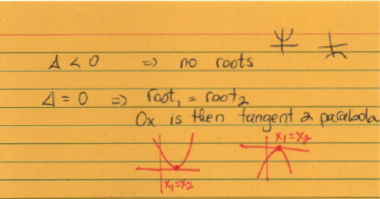 Δ < 0 => no roots
Δ = 0 => root₁ = root₂
Ox is then tangent 2 parabola
x₁=x₂
x₁=x₂